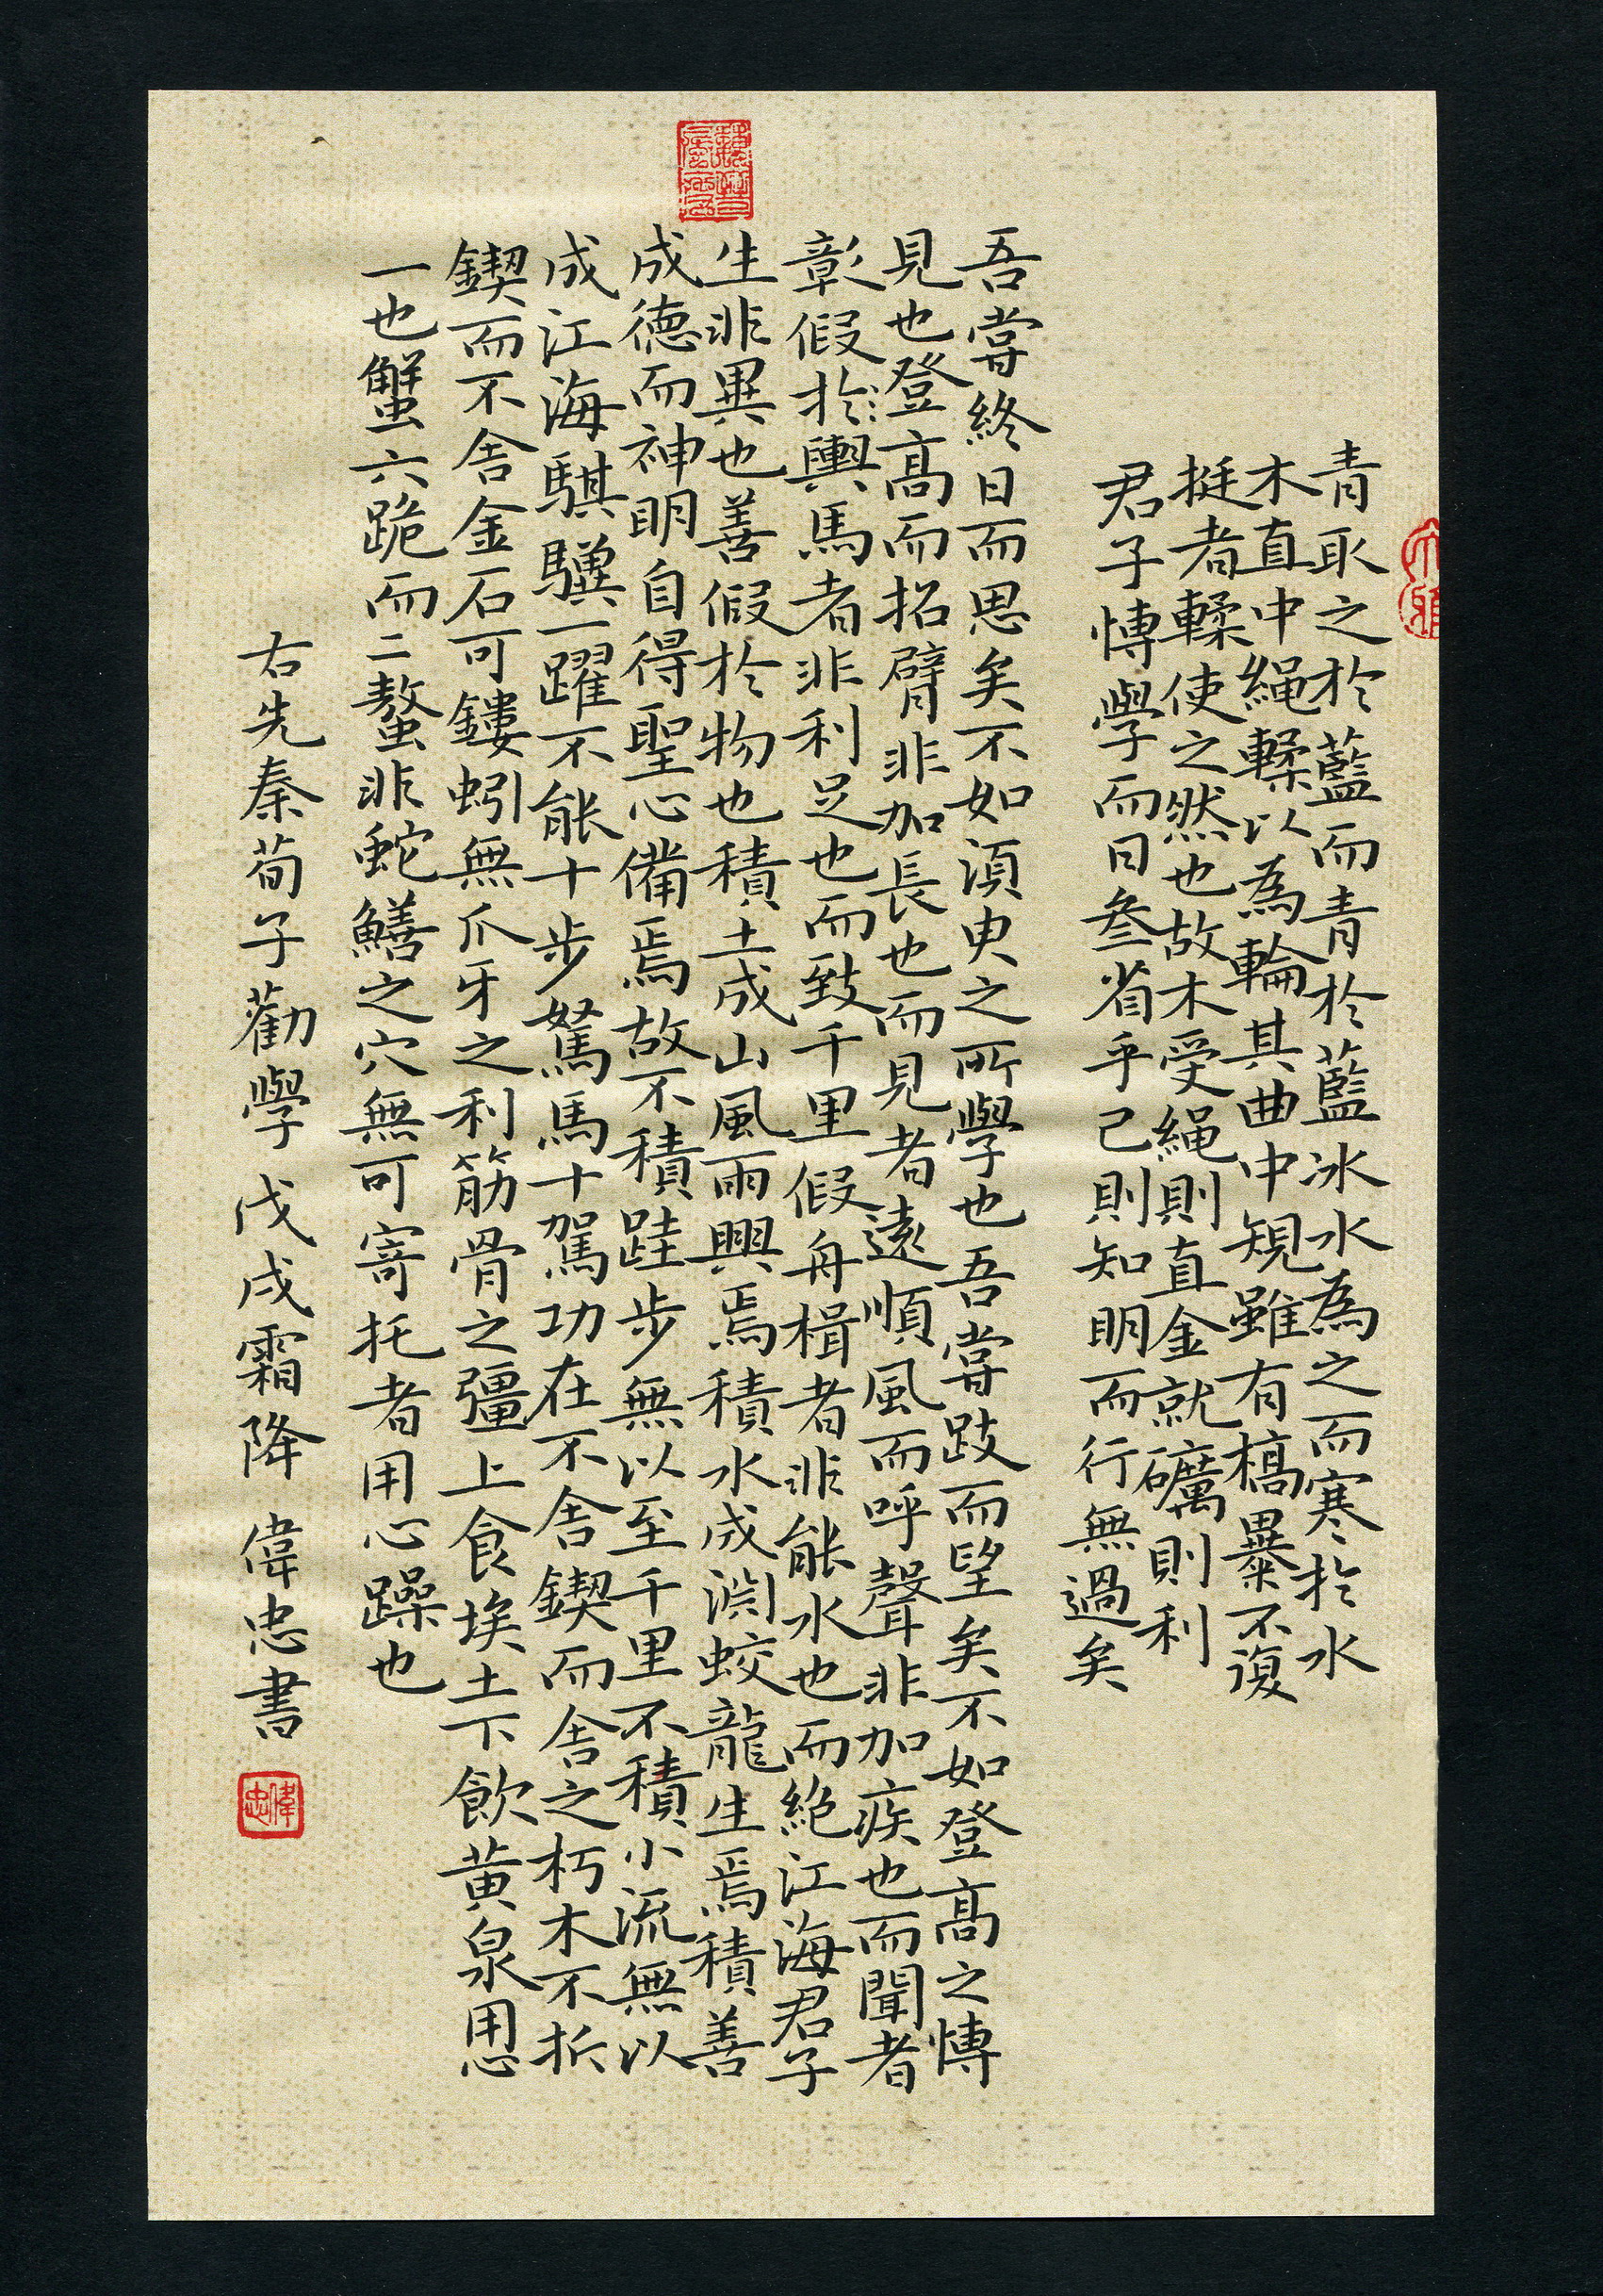 青取之於藍而青於藍冰水為之而寒於水
木直中繩輮以為輪其曲中規雖有槁暴不復
挺者輮使之然也故木受繩則直金就礪則利
君子博學而日參省乎己則知明而行無過矣
吾嘗終日而思矣不如須臾之所學也吾嘗跂而望矣不如登高之博
見也登高而招臂非加長也而見者遠順風而呼聲非加疾也而聞者
彰假於輿馬者非利足也而致千里假舟楫者非能水也而絕江海君子
生非異也善假於物也積土成山風雨興焉積水成淵蛟龍生焉積善
成德而神明自得聖心備焉故不積跬步無以至千里不積小流無以
成江海騏驥一躍不能十步駑馬十駕功在不舍鍥而舍之朽木不折
鍥而不舍金石可鏤蚓無爪牙之利筋骨之彊上食埃土下飲黃泉用心
一也蟹六跪而二螯非蛇鱔之穴無可寄托者用心躁也
右先秦荀子勸學 戊戌霜降 偉忠書
偉忠